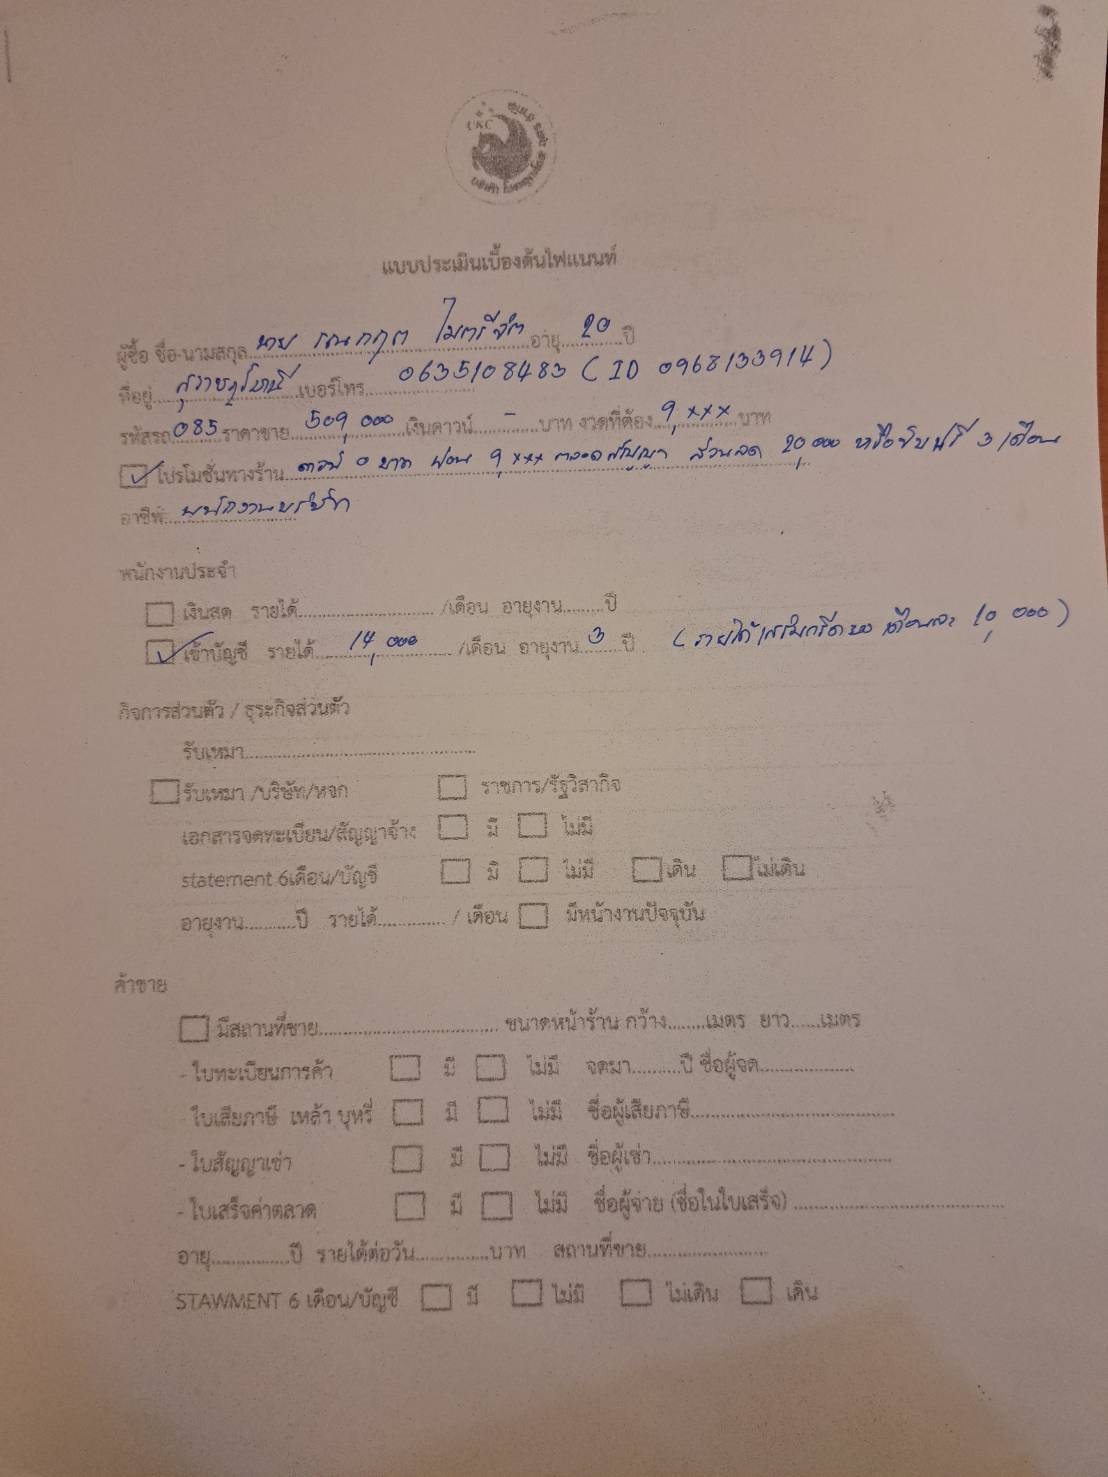 UKC
แบบประเมินเบื้องต้นไฟแนนท์
ผู้ซื้อ ชื่อ-นามสกุล นาย ไมตรีจิต อายุ 20 ปี
ที่อยู่ สุราษฎร์ธานี เบอร์โทร 0635108483 (ID 0968133914)
รหัสรถ 085 ราคาขาย 509,000 เงินดาวน์ - บาท งวดที่ต้อง 9,xxx บาท
โปรโมชั่นทางร้าน ดาวน์ 0 บาท ผ่อน 9,xxx ตลอดสัญญา ส่วนลด 20,000 หรือขับฟรี 3 เดือน
อาชีพ พนักงานบริษัท
พนักงานประจำ
เงินสด รายได้ /เดือน อายุงาน ปี
เข้าบัญชี รายได้ 14,000 /เดือน อายุงาน 3 ปี (รายได้เสริม เดือนละ 10,000)
กิจการส่วนตัว / ธุระกิจส่วนตัว
รับเหมา
รับเหมา /บริษัท/หจก ราชการ/รัฐวิสากิจ
เอกสารจดทะเบียน/สัญญาจ้าง มี ไม่มี
statement 6เดือน/บัญชี มี ไม่มี เดิน ไม่เดิน
อายุงาน ปี รายได้ / เดือน มีหน้างานปัจจุบัน
ค้าขาย
มีสถานที่ขาย ขนาดหน้าร้าน กว้าง เมตร ยาว เมตร
- ใบทะเบียนการค้า มี ไม่มี จดมา ปี ชื่อผู้จด
- ใบเสียภาษี เหล้า บุหรี่ มี ไม่มี ชื่อผู้เสียภาษี
- ใบสัญญาเช่า มี ไม่มี ชื่อผู้เช่า
- ใบเสร็จค่าตลาด มี ไม่มี ชื่อผู้จ่าย (ชื่อในใบเสร็จ)
อายุ ปี รายได้ต่อวัน บาท สถานที่ขาย
STAWMENT 6 เดือน/บัญชี มี ไม่มี ไม่เดิน เดิน